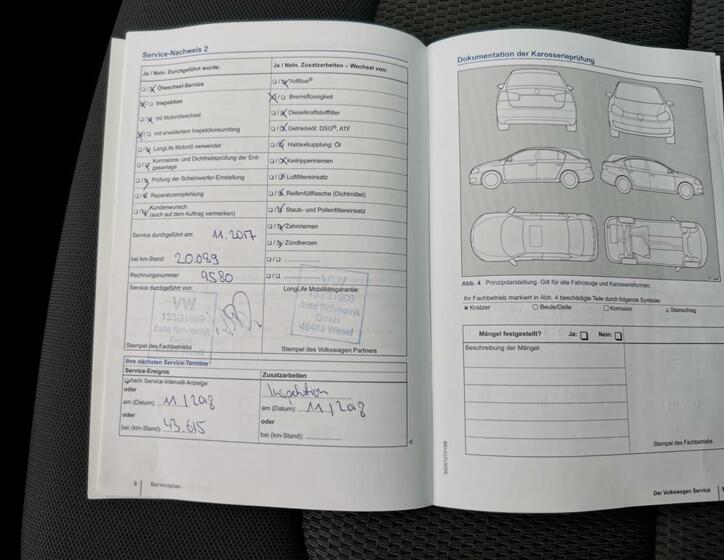 Service-Nachweis 2
Ja / Nein. Durchgeführt wurde:
Ölwechsel-Service
Inspektion
mit Motorölwechsel
mit erweitertem Inspektionsumfang
LongLife Motoröl verwendet
Korrosions- und Dichtheitsprüfung der Erd-
gasanlage
Prüfung der Scheinwerfer-Einstellung
Reparaturempfehlung
Kundenwunsch
(auch auf dem Auftrag vermerken)
Service durchgeführt am: 11.2017
bei km-Stand: 20.089
Rechnungsnummer: 9580
Service durchgeführt von:
VW
133/31909
Auto Schmeink
GmbH
46483 Wesel
Stempel des Fachbetriebs
Ja / Nein. Zusatzarbeiten – Wechsel von:
AdBlue®
Bremsflüssigkeit
Dieselkraftstofffilter
Getriebeöl: DSG®, ATF
Haldexkupplung: Öl
Keilrippenriemen
Luftfiltereinsatz
Reifenfüllflasche (Dichtmittel)
Staub- und Pollenfiltereinsatz
Zahnriemen
Zündkerzen
LongLife Mobilitätsgarantie:
VW
133/31909
Auto Schmeink
GmbH
46483 Wesel
Stempel des Volkswagen Partners
Ihre nächsten Service-Termine
Service-Ereignis
nach Service-Intervall-Anzeige
oder
am (Datum) 11/2018
oder
bei (km-Stand): 43.615
Zusatzarbeiten
Inspektion
am (Datum): 11/2018
oder
bei (km-Stand):
8 Serviceplan
Dokumentation der Karosserieprüfung
Abb. 4 Prinzipdarstellung. Gilt für alle Fahrzeuge und Karosserieformen.
Ihr Fachbetrieb markiert in Abb. 4 beschädigte Teile durch folgende Symbole:
x Kratzer O Beule/Delle □ Korrosion △ Steinschlag
Mängel festgestellt? Ja: Nein:
Beschreibung der Mängel:
Stempel des Fachbetriebs
Der Volkswagen Service